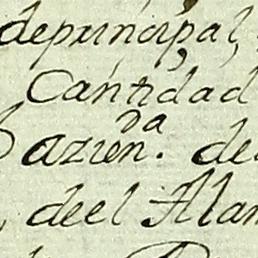 deprincipal,
Cantidad
azien.da de
deel Alam